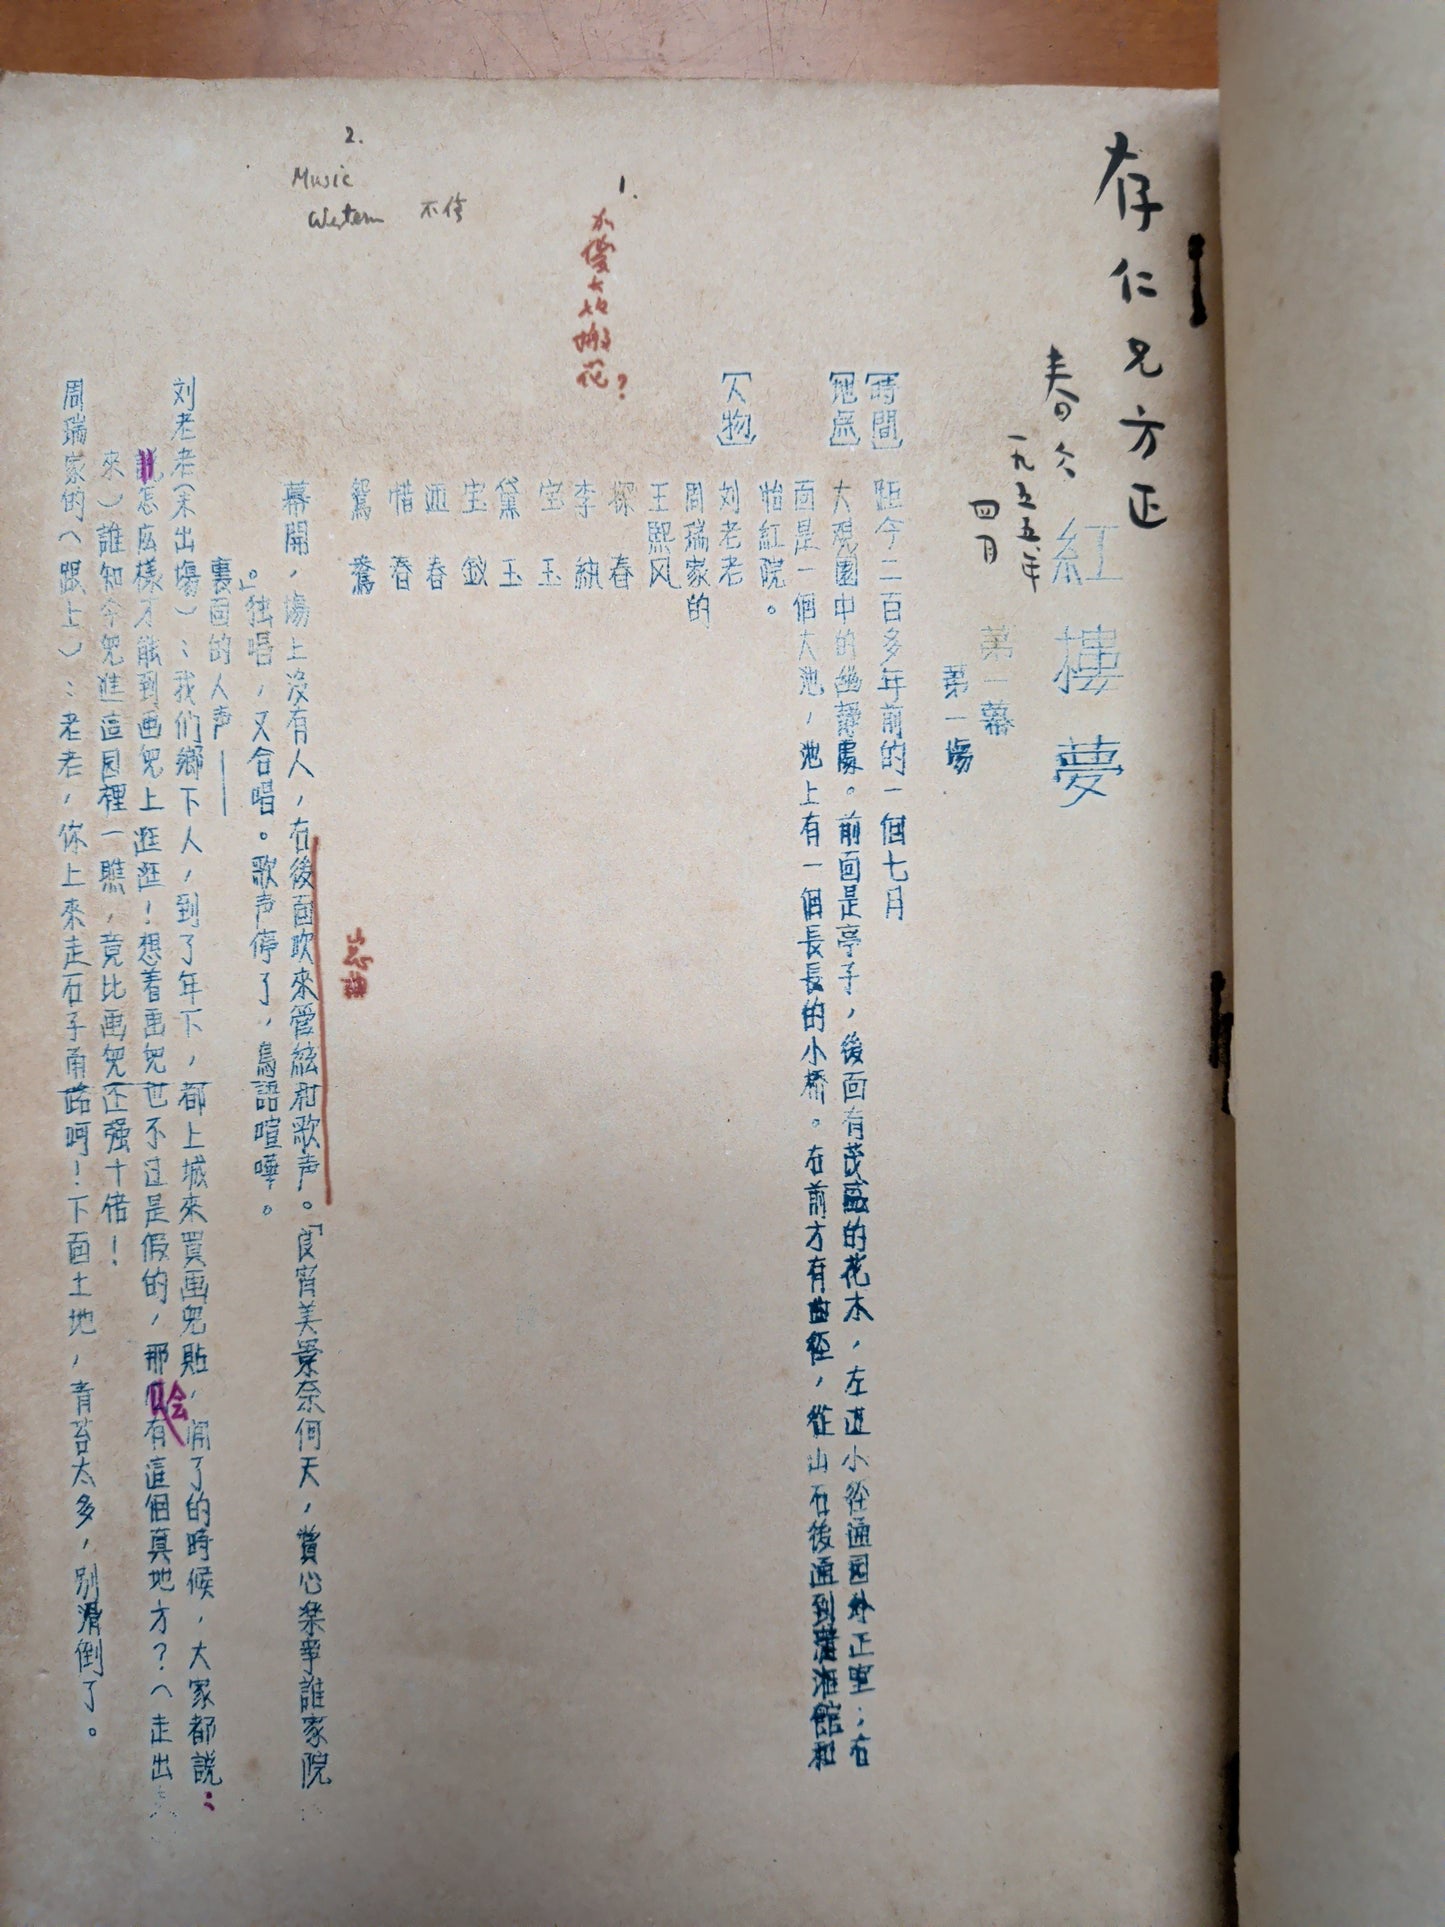 存仁兄方正
春
一九五五年
四月
紅樓夢
第一幕
第一場
【時間】距今二百多年前的一個七月
【地點】大观園中的幽靜處。前面是亭子，後面有茂盛的花木，左边小徑通园外正里；右
面是一個大池，池上有一個長長的小橋。在前方有曲徑，從山石後通到瀟湘館和
怡紅院。
【人物】刘老老
周瑞家的
王熙风
探春
李紈
宝玉
黛玉
宝釵
迎春
惜春
鴛鴦
1.
不傻大姐搬花？
2.
Music
Western
幕開，場上沒有人，右後面吹來管絃和歌声。「良宵美景奈何天，賞心樂事誰家院
。」独唱，又合唱。歌声停了，鳥語喧嘩。
裏面的人声——
刘老老（未出場）：我们鄉下人，到了年下，都上城來買画兒貼，閒了的時候，大家都説：
怎庅樣才能到画兒上逛逛！想着画兒也不过是假的，那會有這個真地方？（走出
來）誰知今兒進這园裡一瞧，竟比画兒还强十倍！
周瑞家的（跟上）：老老，你上來走石子甬路呵！下面土地，青苔太多，别滑倒了。